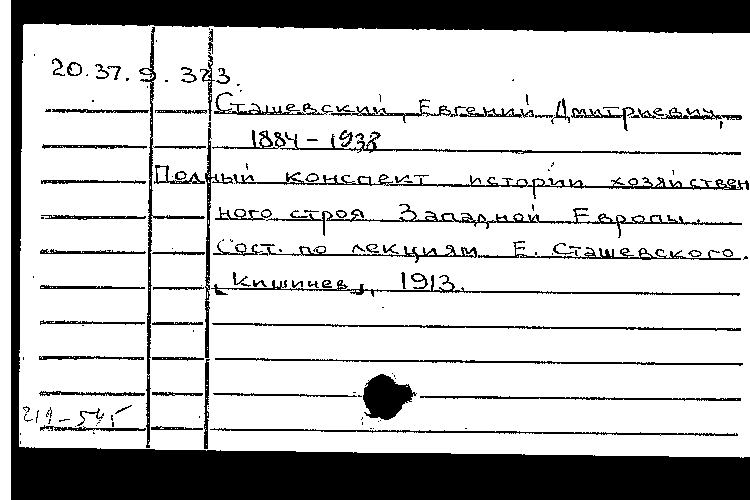 20.37.9.323.
Сташевский, Евгений Дмитриевич,
1884-1938
Полный конспект истории хозяйствен
ного строя Западной Европы.
Сост. по лекциям Е. Сташевского.
[Кишинев], 1913.
211-545